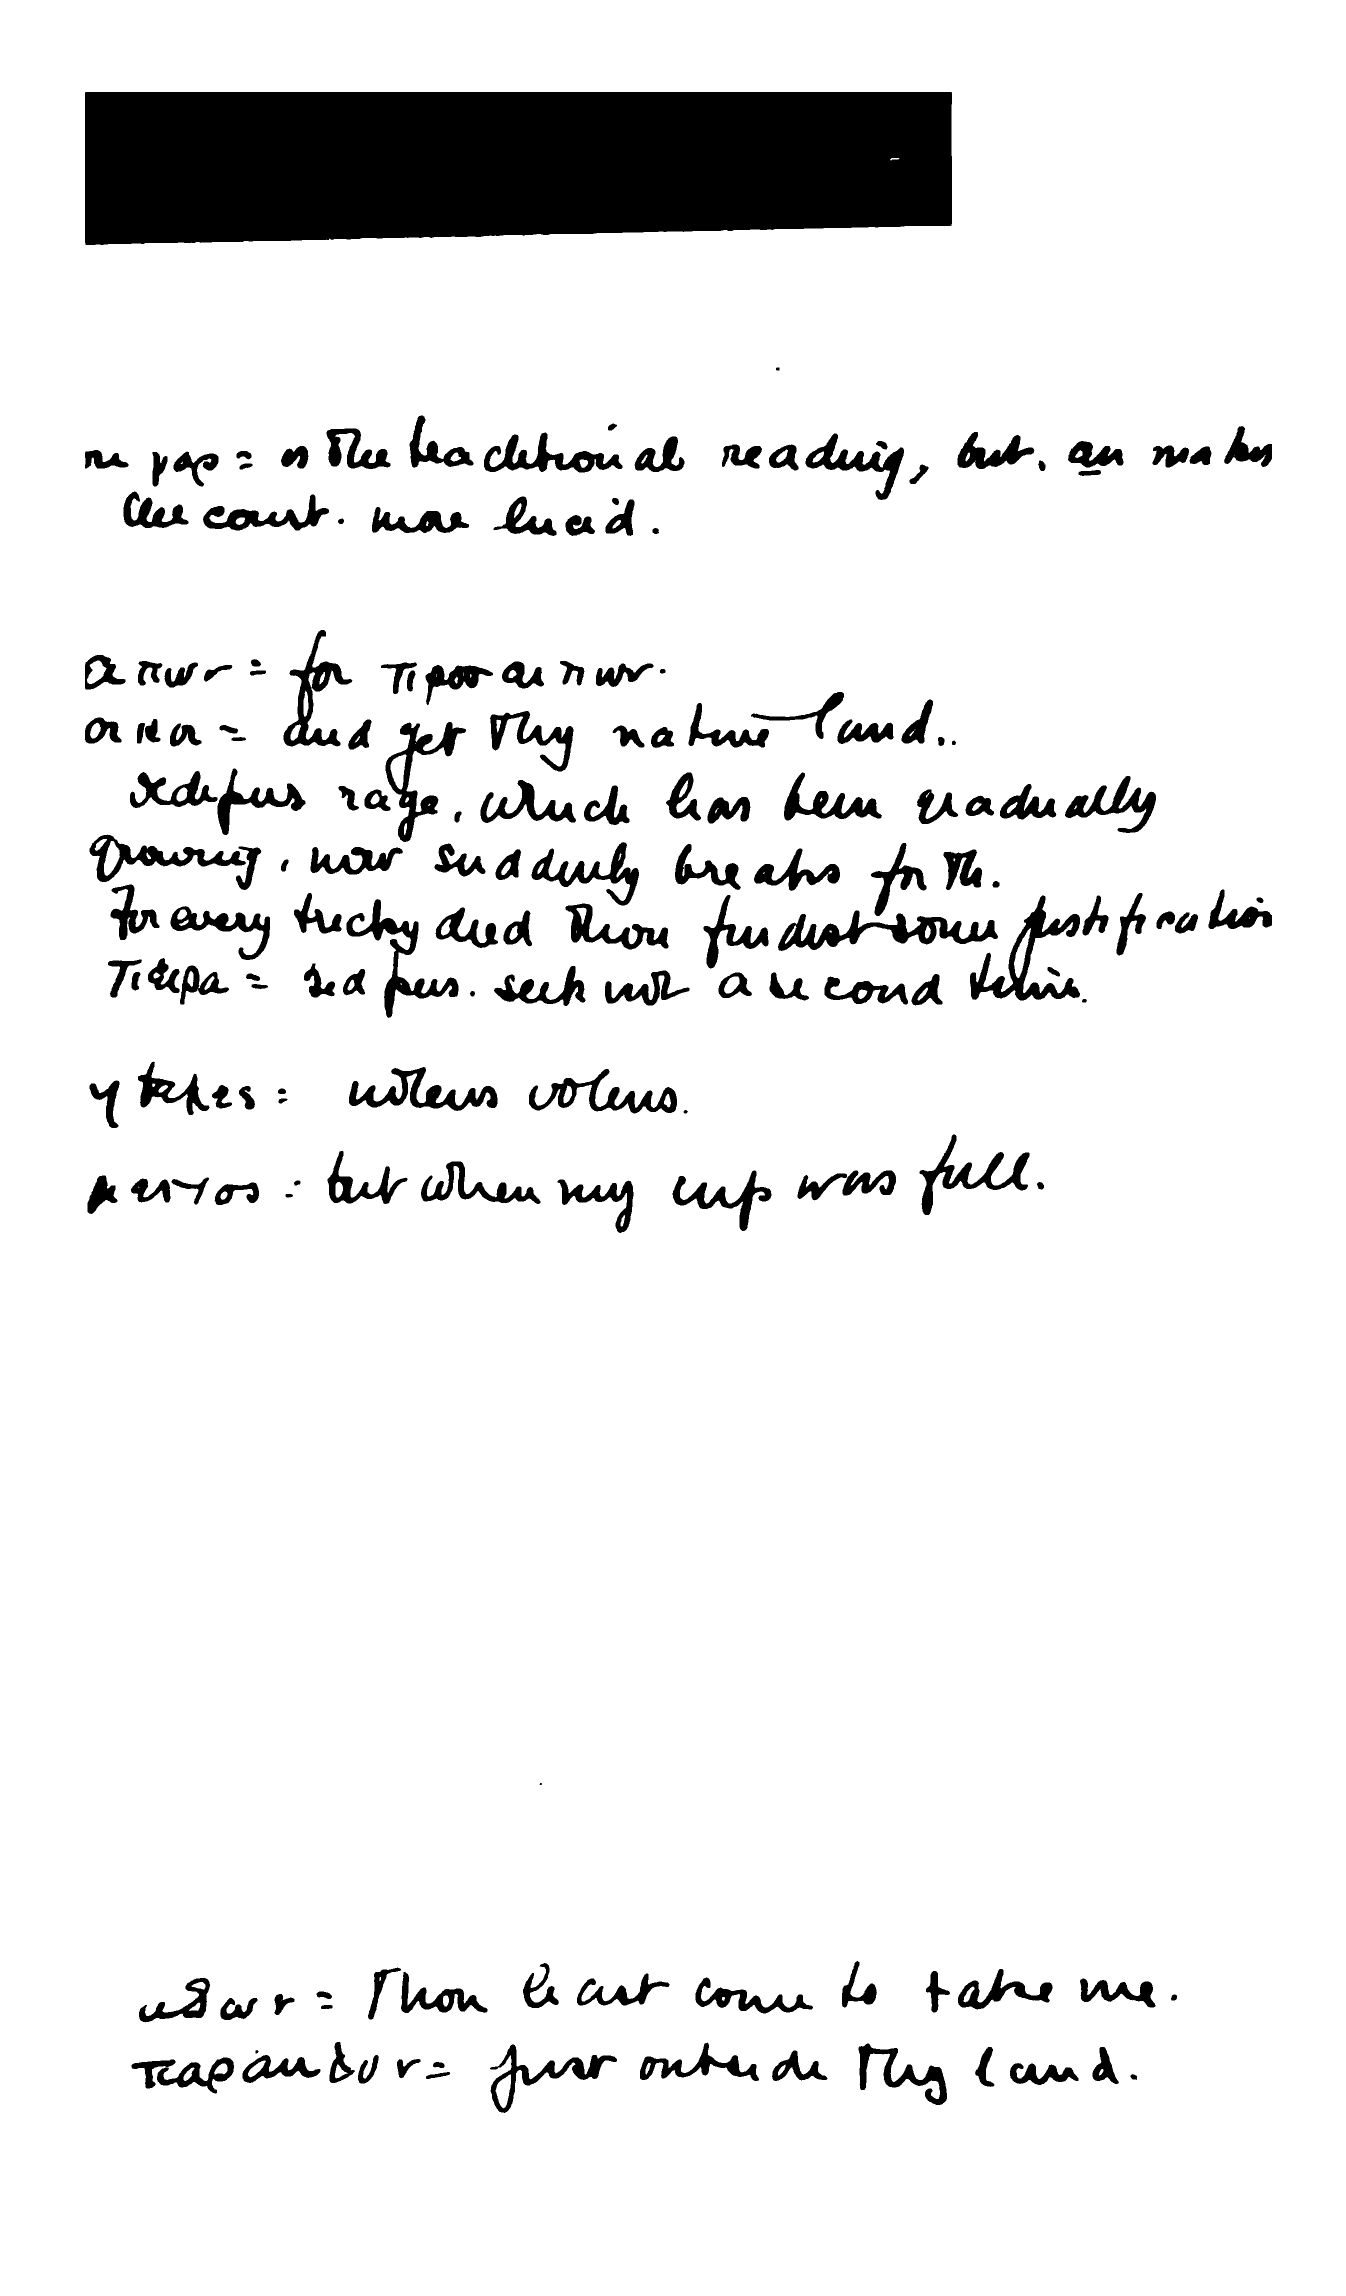 γαρ = is the traditional reading, but. αν makes
the const. more lucid.
= for
= and yet thy native land..
Œdipus rage, which has been gradually
growing, now suddenly breaks forth.
For every tricky deed thou findest some justification
= seek not a second time.
= nolens volens.
μεστος = but when my cup was full.
= Thou hast come to take me.
παραυλον = just outside thy land.